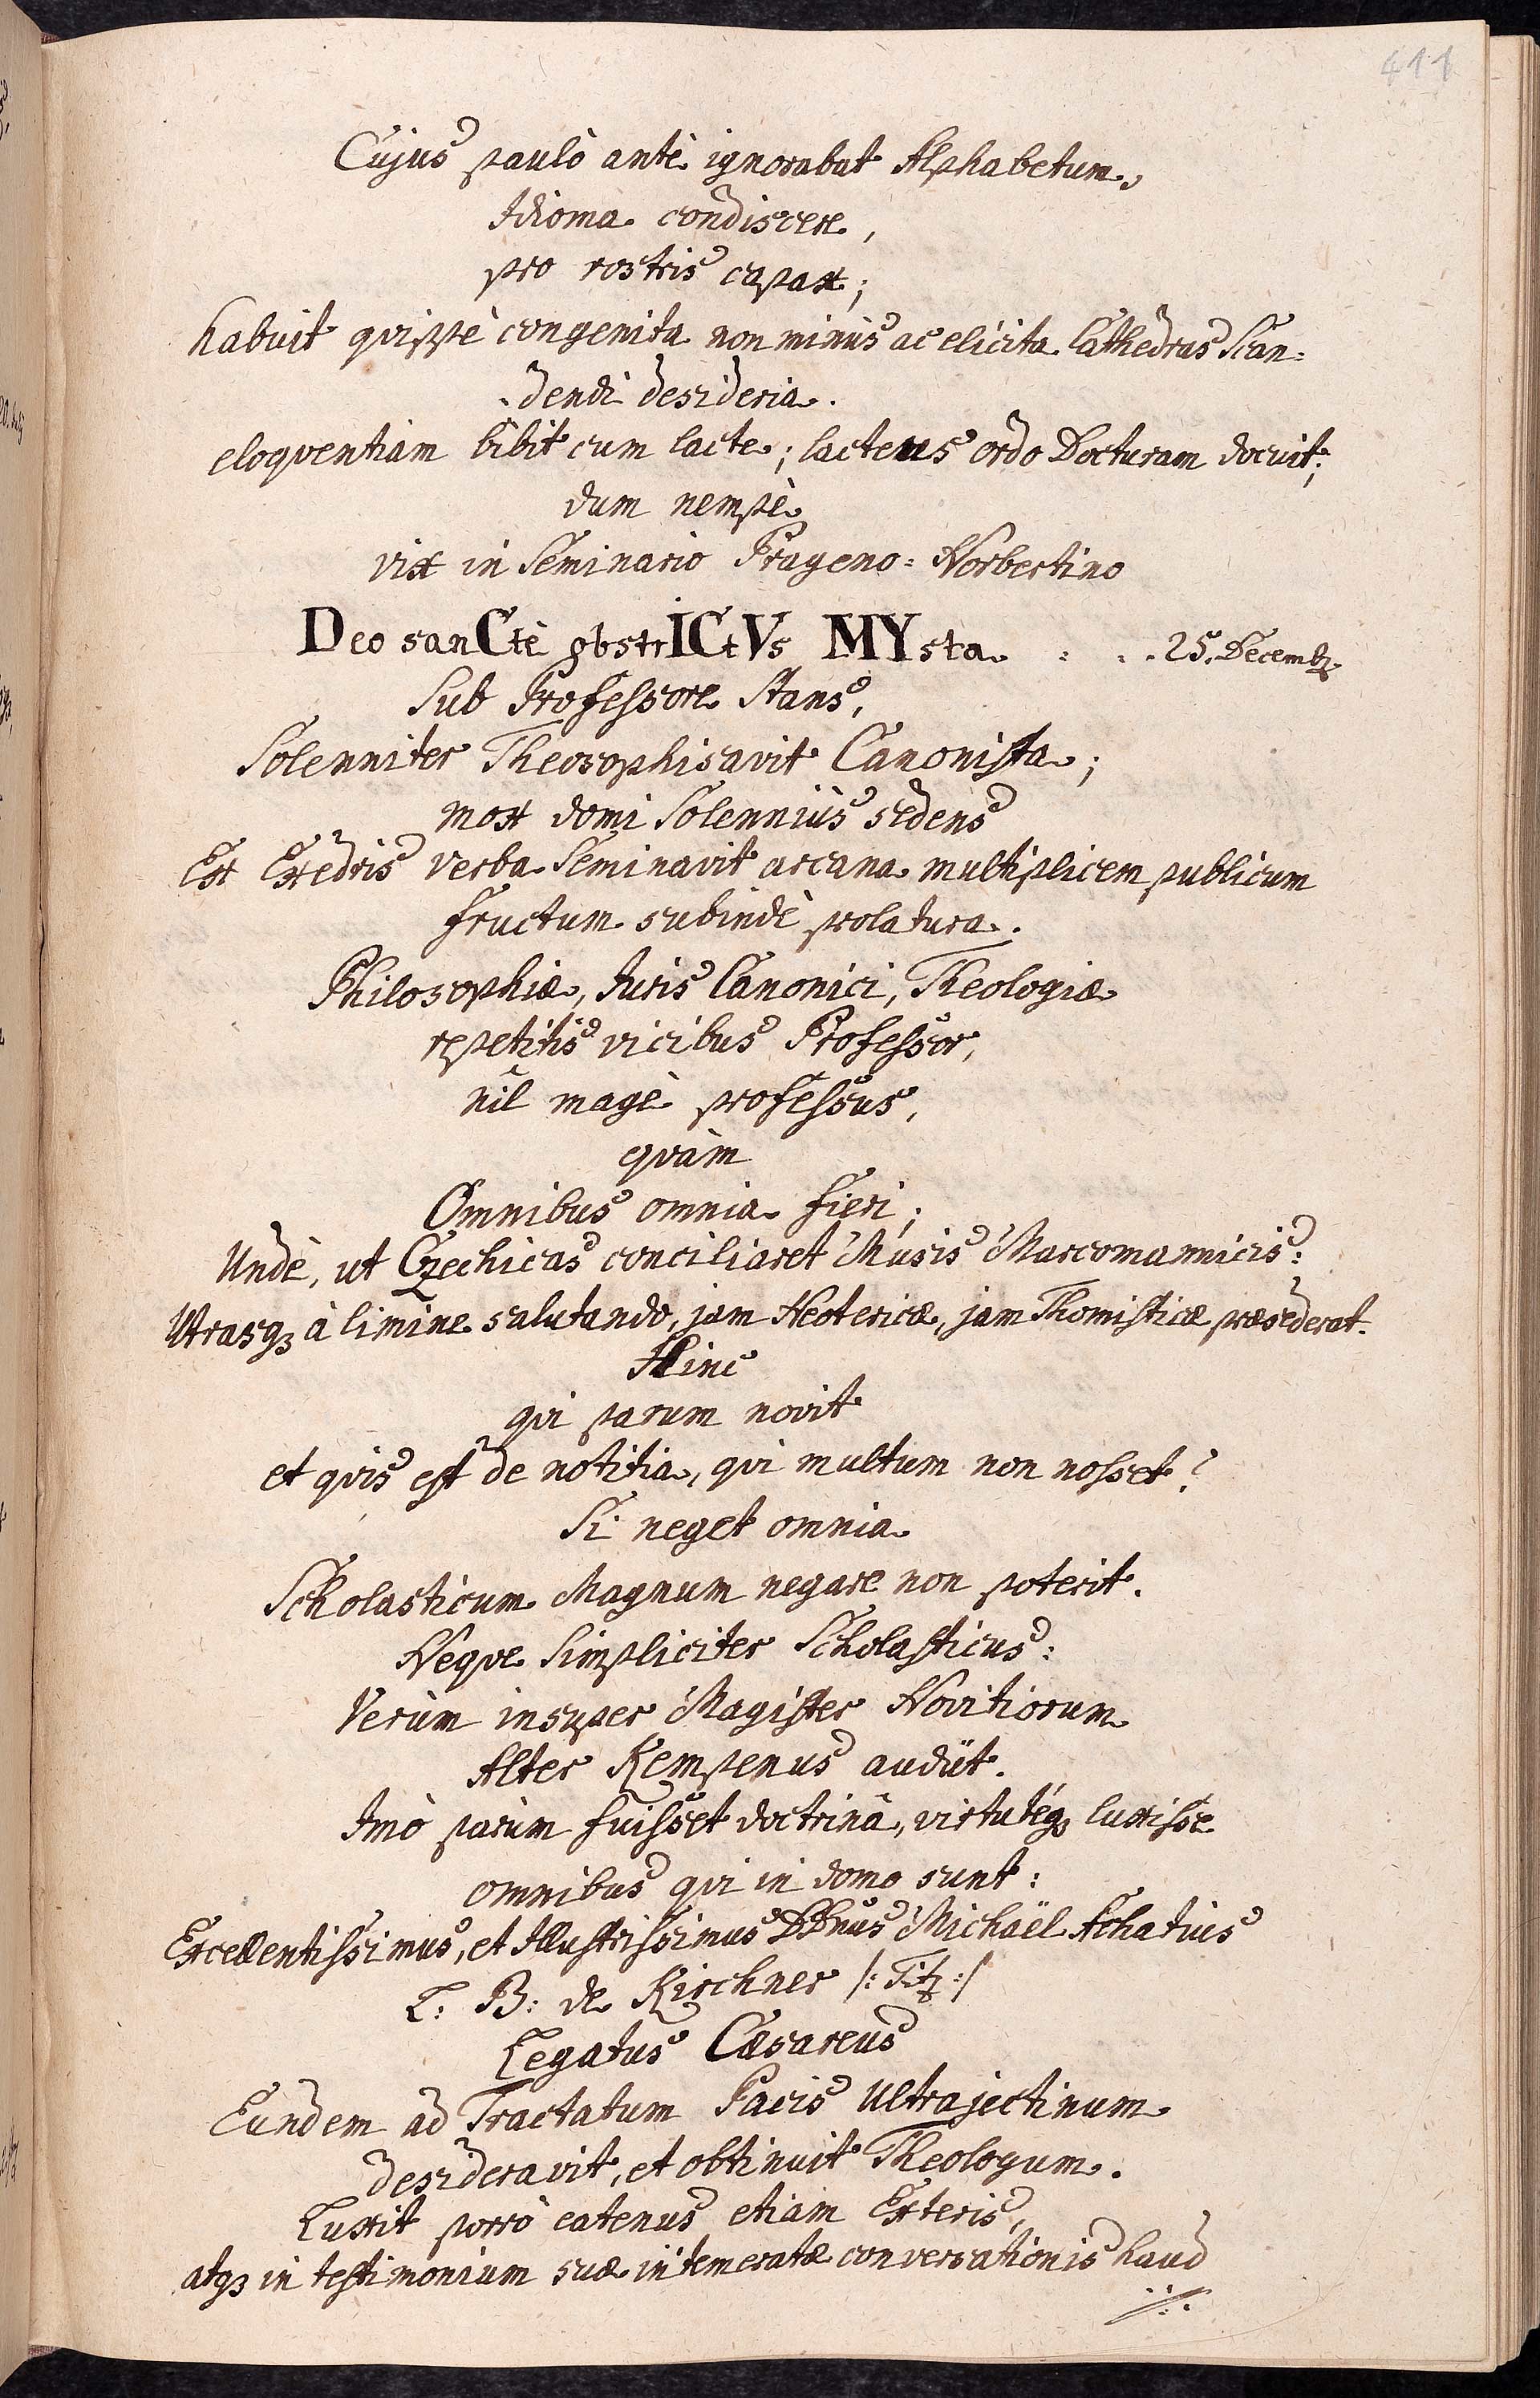 411
Cujus paulò antè ignorabat Alphabetum,
Idioma condiscere,
pro rostris capax;
habuit quippè congenita non minùs ac elicita Cathedras Scan-
dendi desideria.
eloquentiam bibit cum lacte; lacteus ordo Docturam docuit;
dum nempè
vix in Seminario Prageno-Norbertino
Deo sanCtè obstrICtVs MYsta . . . 25. Decembr.
Sub Professore Stans,
Solenniter Theosophisavit Canonista;
mox domi Solenniùs sedens
Ex Exedris verba Seminavit arcana multiplicem publicum
fructum subindè prolatura.
Philosophiæ, Juris Canonici, Theologiæ
repetitis vicibus Professor,
nil magè professus,
quàm
Omnibus omnia fieri;
Undè, ut Czechicas conciliaret Musis Marcomannicis:
Utrasq3 à limine salutando, jam Neotericæ, jam Thomisticæ præsederat.
Hinc
qui parum novit
et quis est de notitia, qui multum non nosset?
Si neget omnia
Scholasticum Magnum negare non poterit.
Neque Simpliciter Scholasticus:
Verùm insuper Magister Novitiorum
Alter Kempenus audiit.
Imò parùm fuisset doctrinâ, virtutéq3 luxisse
omnibus qui in domo sunt:
Excellentissimus, et Illustrissimus DDnus Michaël Achatius
L: B: de Kirchner /: Tit: :/
Legatus Cæsareus
Eundem ad Tractatum Pacis Ultrajectinum
desideravit, et obtinuit Theologum.
Luxit porrò eatenus etiam Exteris,
atq3 in testimonium suæ intemeratæ conversationis haud